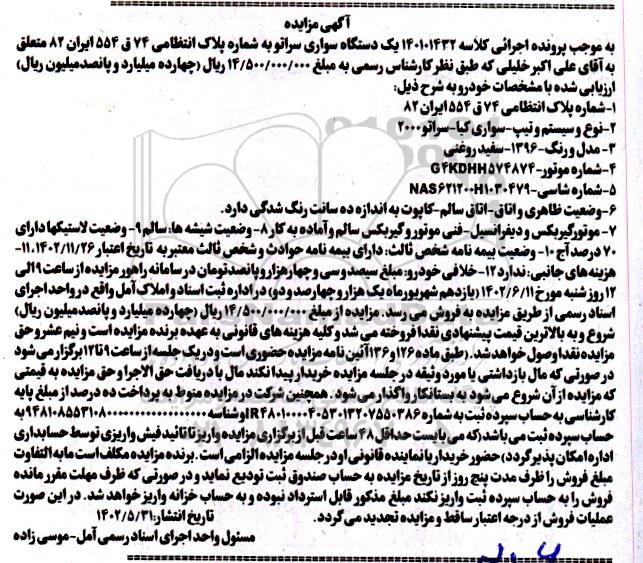 آگهی مزایده
به موجب پرونده اجرائی کلاسه ۱۴۰۱۰۱۴۳۲ یک دستگاه سواری سراتو به شماره پلاک انتظامی ۷۴ ق ۵۵۴ ایران ۸۲ متعلق
به آقای علی اکبر خلیلی که طبق نظر کارشناس رسمی به مبلغ ۱۴/۵۰۰/۰۰۰/۰۰۰ ریال (چهارده میلیارد و پانصدمیلیون ریال)
ارزیابی شده با مشخصات خودرو به شرح ذیل:
۱-شماره پلاک انتظامی ۷۴ ق ۵۵۴ ایران ۸۲
۲-نوع و سیستم و تیپ-سواری کیا-سراتو ۲۰۰۰
۳- مدل و رنگ-۱۳۹۶-سفید روغنی
۴-شماره موتور-G۴KDHH۵۷۴۸۷۴
۵-شماره شاسی-NAS۶۲۱۲۰۰H۱۰۳۰۴۷۹
۶-وضعیت ظاهری و اتاق-اتاق سالم-کاپوت به اندازه ده سانت رنگ شدگی دارد.
۷- موتورگیربکس و دیفرانسیل-فنی موتور و گیربکس سالم و آماده به کار ۸- وضعیت شیشه ها: سالم ۹- وضعیت لاستیکها دارای
۷۰ درصد آج ۱۰- وضعیت بیمه نامه شخص ثالث: دارای بیمه نامه حوادث و شخص ثالث معتبر به تاریخ اعتبار ۱۴۰۲/۱۱/۲۶. ۱۱-
هزینه های جانبی: ندارد ۱۲- خلافی خودرو: مبلغ سیصد و سی و چهار هزار و پانصد تومان در سامانه راهور مزایده از ساعت ۹ الی
۱۲ روز شنبه مورخ ۱۴۰۲/۶/۱۱ (یازدهم شهریورماه یک هزار و چهارصد و دو) در اداره ثبت اسناد و املاک آمل واقع در واحد اجرای
اسناد رسمی از طریق مزایده به فروش می رسد. مزایده از مبلغ ۱۴/۵۰۰/۰۰۰/۰۰۰ ریال (چهارده میلیارد و پانصدمیلیون ریال)
شروع و به بالاترین قیمت پیشنهادی نقدا فروخته می شد و کلیه هزینه های قانونی به عهده برنده مزایده است و نیم عشر و حق
مزایده نقدا وصول خواهد شد. (طبق ماده ۱۲۶ و ۱۳۶ آئین نامه مزایده حضوری است و در یک جلسه از ساعت ۹ تا ۱۲ برگزار می شود
در صورتی که مال بازداشتی یا مورد وثیقه در جلسه مزایده خریدار پیدا نکند مال با دریافت حق الاجرا و حق مزایده به قیمتی
که مزایده از آن شروع می شود به بستانکار واگذار می شود. همچنین شرکت در مزایده منوط به پرداخت ده درصد از مبلغ پایه
کارشناسی به حساب سپرده ثبت به شماره و شناسه به
حساب سپرده ثبت می باشد (که می بایست حداقل ۴۸ ساعت قبل از برگزاری مزایده واریز تا تائید فیش واریزی توسط حسابداری
اداره امکان پذیر گردد) حضور خریدار یا نماینده قانونی او در جلسه مزایده الزامی است. برنده مزایده مکلف است مابه التفاوت
مبلغ فروش را ظرف مدت پنج روز از تاریخ مزایده به حساب صندوق ثبت تودیع نماید و در صورتی که ظرف مهلت مقرر مانده
فروش را به حساب سپرده ثبت واریز نکند مبلغ مذکور قابل استرداد نبوده و به حساب خزانه واریز خواهد شد. در این صورت
عملیات فروش از درجه اعتبار ساقط و مزایده تجدید می گردد.
تاریخ انتشار: ۱۴۰۲/۵/۳۱
مسئول واحد اجرای اسناد رسمی آمل-موسی زاده